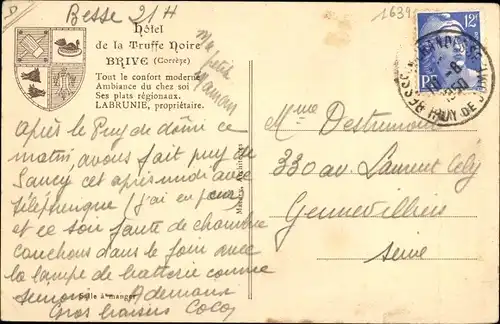 Besse 21 H
1639
Hôtel
de la Truffe Noire
BRIVE (Corrèze)
Tout le confort moderne
Ambiance du chez soi
Ses plats régionaux.
LABRUNIE, propriétaire.
ma
petit
amour
12F
PS
BESSE PUY DE DOME
Après le Puy de dôme ce
matin, avons fait puy de
Sancy et après midi avec
téléphérique j'ai eu peur
et ce soir faute de chambre
couchons dans le foin avec
la lampe de batterie comme
Salle à manger
Gros baisers Coco
Mme Destrumont
330 av Laurent Cély
Gennevilliers
Seine